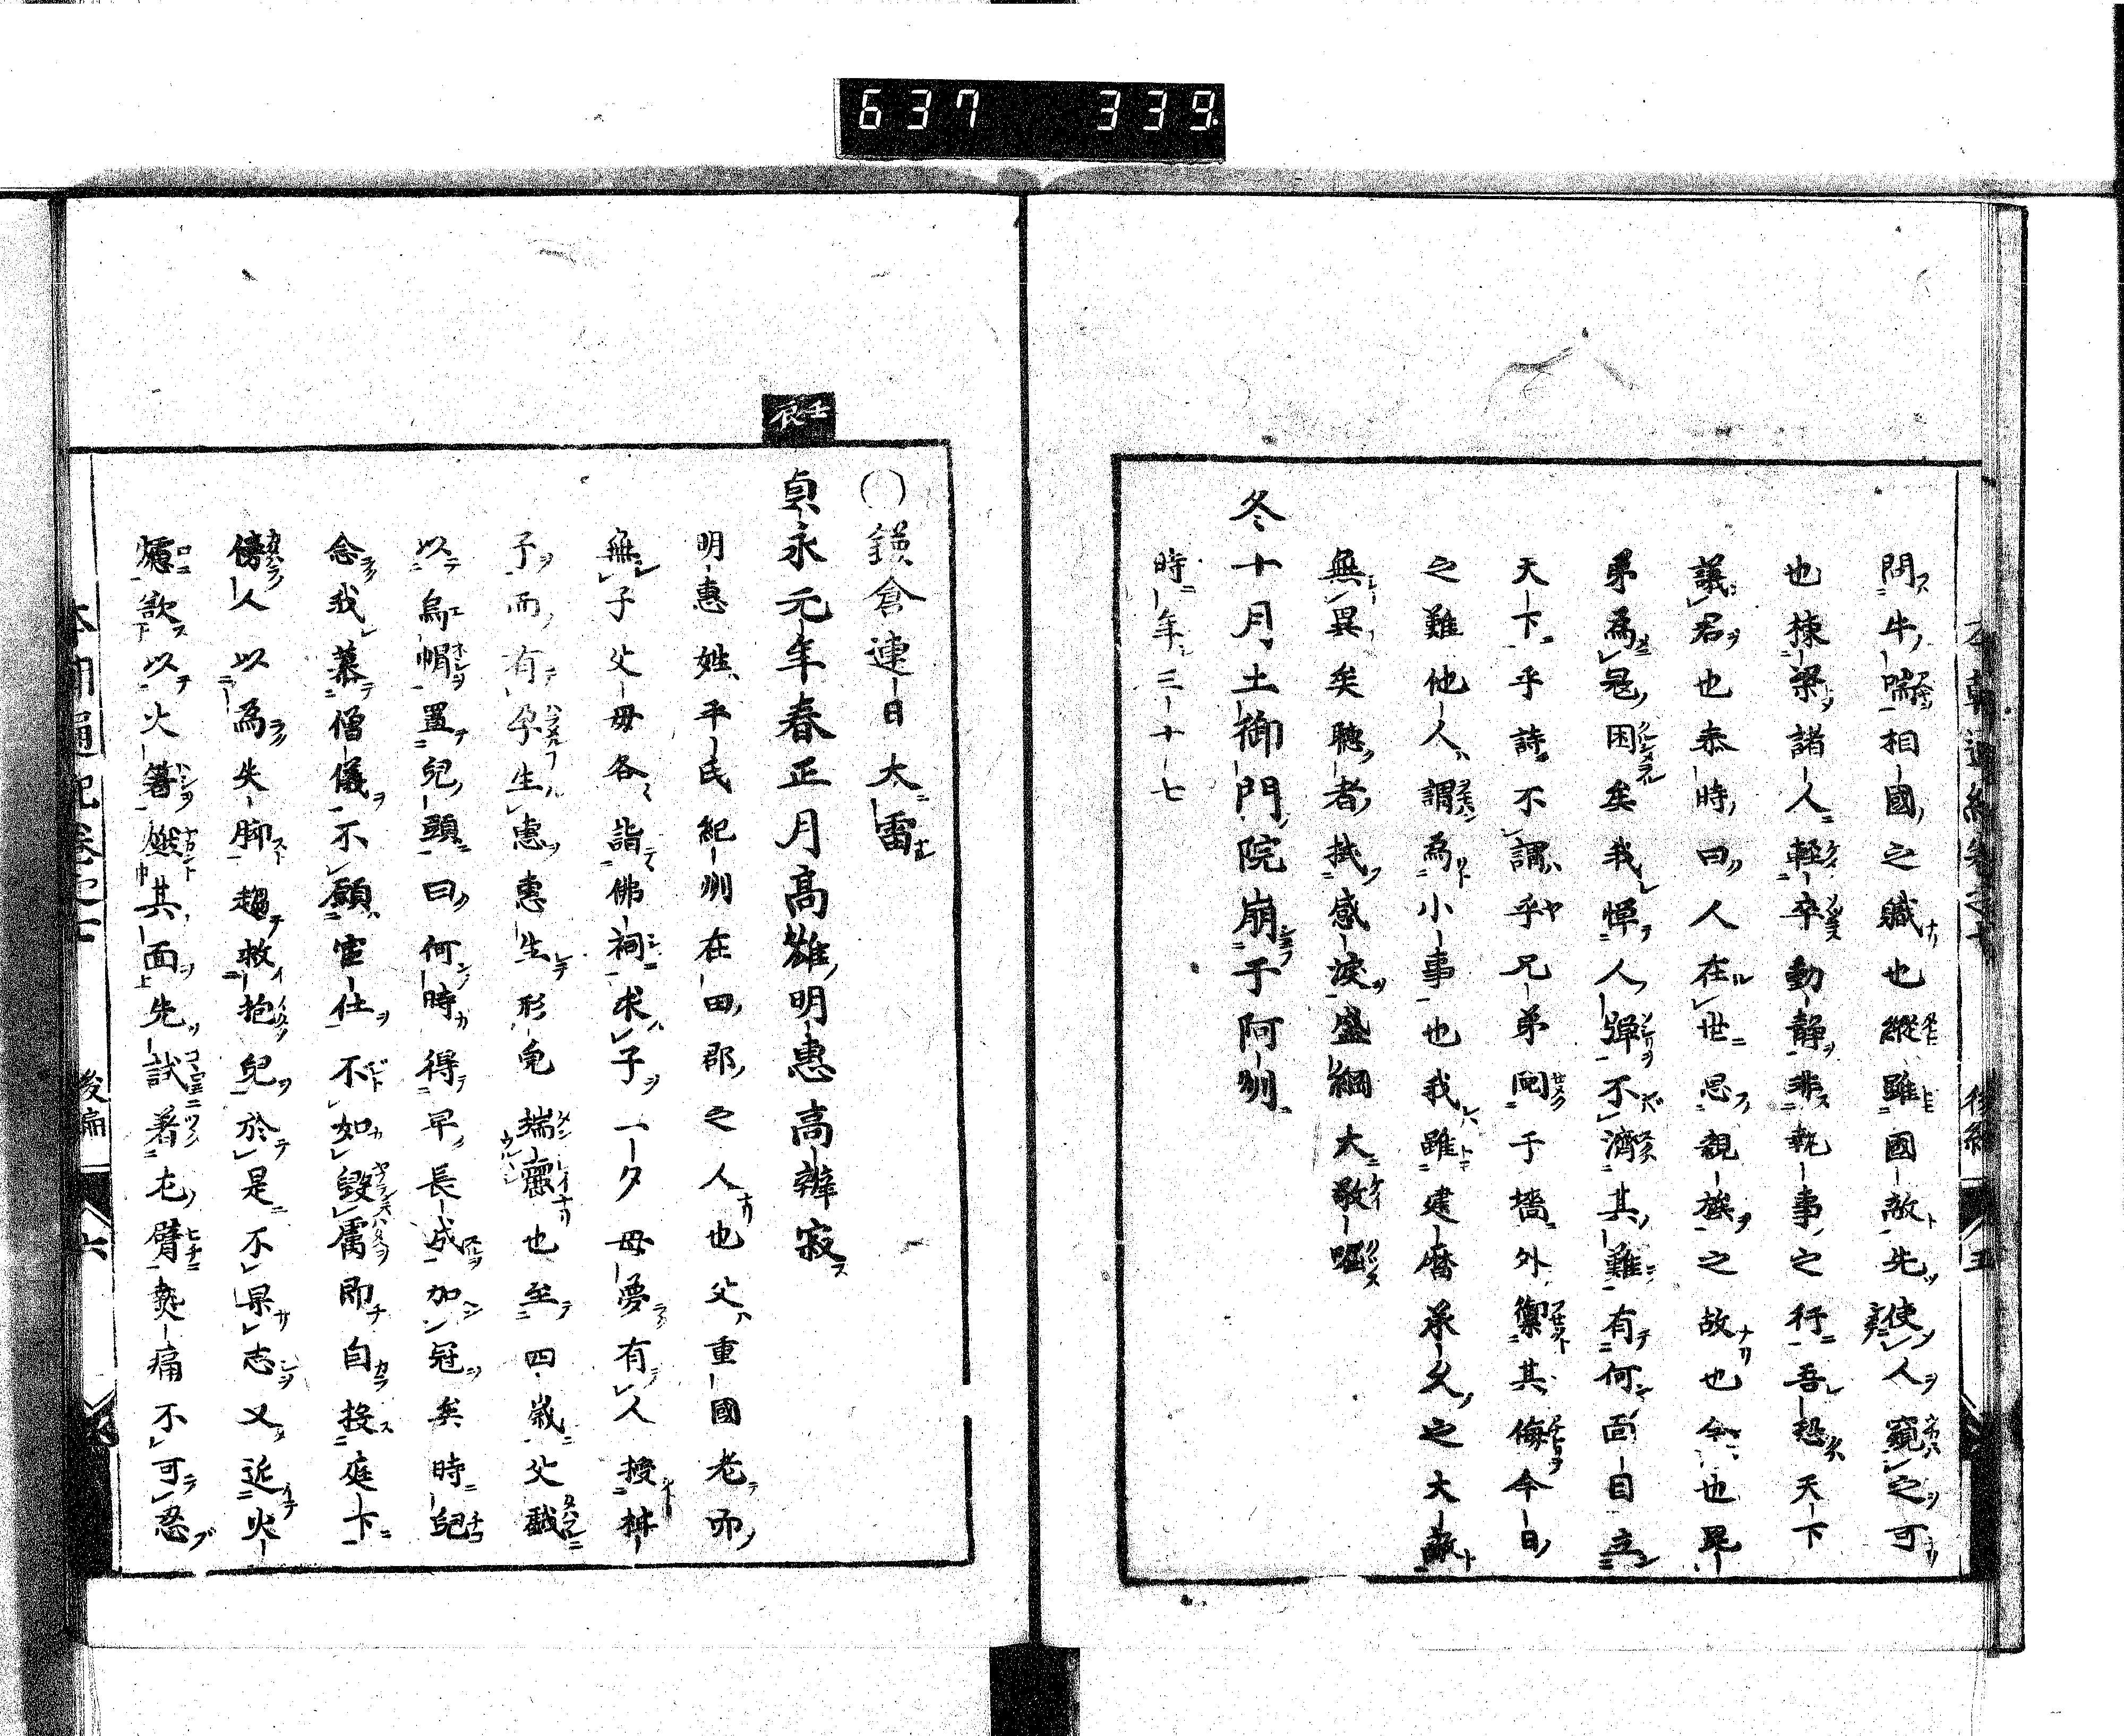 637 339
問牛喘相國之職也縱雖國敵先使人窺之可
也棟梁諸人輕卒動靜非執事之行吾恐天下
議君也泰時曰人在世思親族之故也今也舅
弟為冦困矣我憚人彈不濟其難有何面目立
天下乎詩不謂乎兄弟鬩于墻外禦其侮今日
之難他人謂為小事也我雖建曆承久之大敵
無異矣聽者拭感淚盛綱大敬嘔
冬十月土御門院崩于阿州
時年三十七
壬辰
〇鎌倉連日大雷
貞永元年春正月高雄明惠高辨寂
明惠姓平氏紀州在田郡之人也父重國老而
無子父母各詣佛祠求子一夕母夢有人授
子而有孕生惠惠生形皃端嚴也至四歲父戲
以烏帽置兒頭曰何時得早長成加冠矣時兒
念我慕僧儀不願官仕不如毀膚即自投庭下
傍人以為失脚趨救抱兒於是不果志又近火
爐欲以火箸燃其面先試著左臂熱痛不可忍
本朝通紀卷之七
後編
六